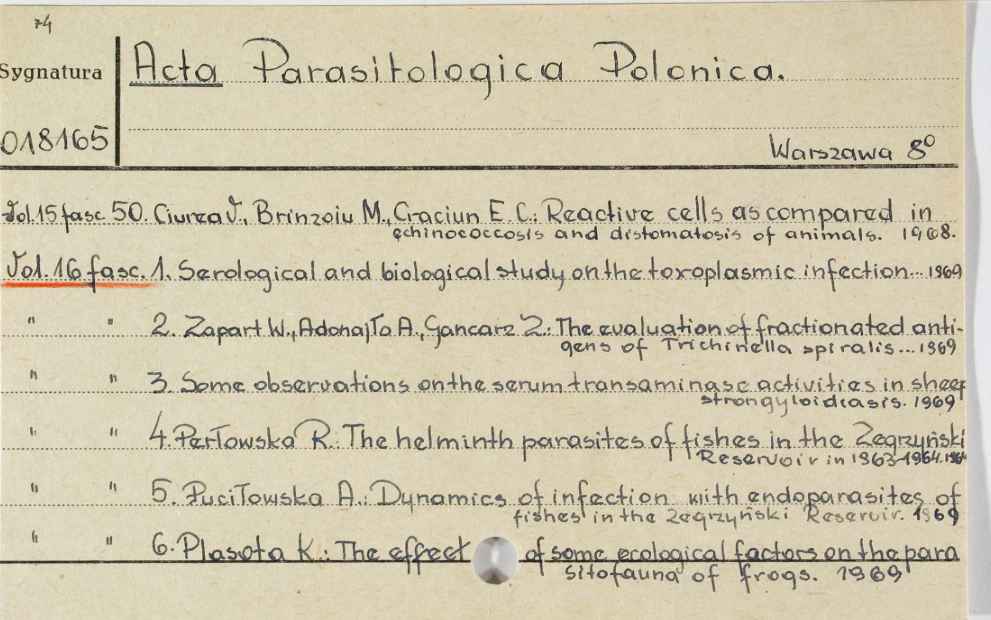 74
Sygnatura
Acta Parasitologica Polonica.
018165
Warszawa 8°
Vol. 15 fasc. 50. Ciurea J., Brinzoiu M., Craciun E. C.: Reactive cells as compared in
echinococcosis and distomatosis of animals. 1968.
Vol. 16 fasc. 1. Serological and biological study on the toxoplasmic infection... 1969
" " 2. Zapart W., Adonajło A., Gancarz Z.: The evaluation of fractionated anti-
gens of Trichinella spiralis... 1969
" " 3. Some observations on the serum transaminase activities in sheep
strongyloidiasis. 1969
" " 4. Perłowska R.: The helminth parasites of fishes in the Zegrzyński
Reservoir in 1963-1964.
" " 5. Puciłowska A.: Dynamics of infection with endoparasites of
fishes in the Zegrzyński Reservoir. 1969
" " 6. Plasota K.: The effect of some ecological factors on the para
sitofauna of frogs. 1969